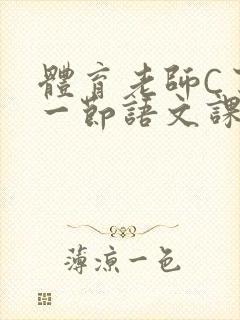 體育老師C
一節語文課
薄涼一色